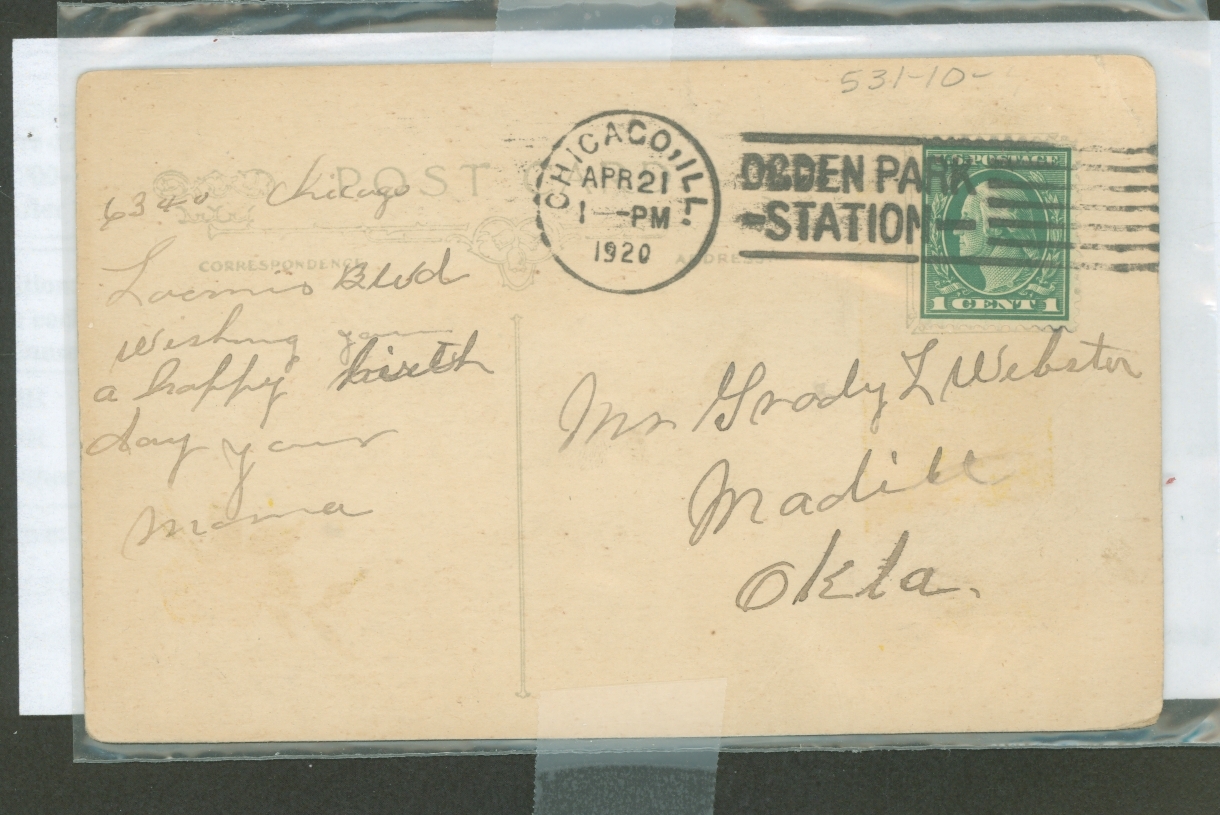 531-10-
POST CARD
CHICAGO, ILL.
APR 21
1 -PM
1920
OGDEN PARK
-STATION-
U.S. POSTAGE
1 CENT 1
CORRESPONDENCE
ADDRESS
6340 Chicago
Loomis Blvd
wishing you
a happy birth
day your
mama
Mr Grady L Webster
Madill
Okla.